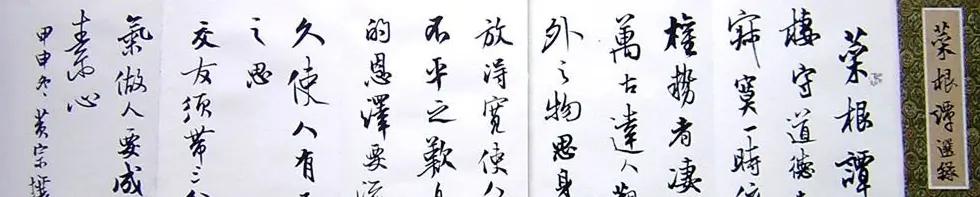 菜根譚選錄
菜根譚
棲守道德
寂寞一時
權勢者凄
萬古達人觀
外之物思身
放淂寬使人
不平之歎
的恩澤要流
久使人有不
之思
交友須帶三分
氣做人要成
素心
甲申冬黄宗